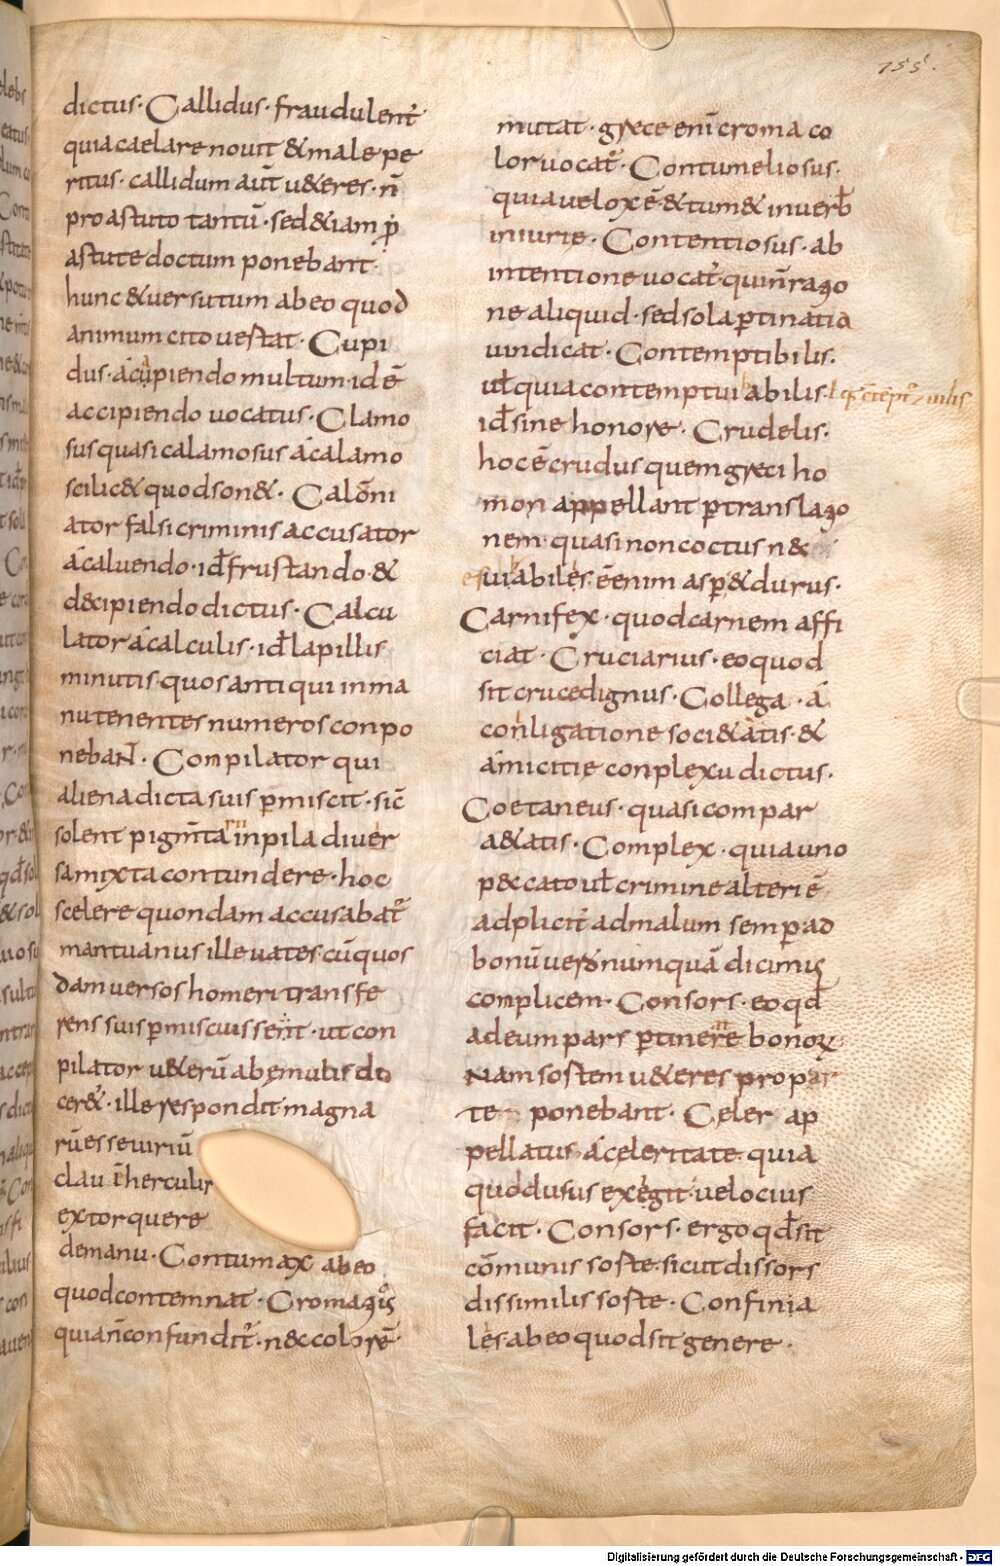 155.
dictus · Callidus · fraudulent̄
quia caelare nouit & male pe
ritus · callidum aūt u&eres · n̄
pro astuto tantū · sed & iam p̱
astute doctum ponebant ·
hunc & uersutum ab eo quod
animum cito uestat · Cupi
dus · á cupiendo multum · id ē
accipiendo uocatus · Clamo
sus quasi calamosus á calamo
scilic& quod son& · Calōni
ator falsi criminis accusator
á caluendo · id̄ frustando &
d&cipiendo dictus · Calcu
lator á calculis · id̄ lapillis
minutis · quos antiqui in ma
nu tenentes numeros conpo
nebant · Compilator qui
aliena dicta suis p̱miscit · sic̄
solent pigm̄ta rii in pila diuer
sa mixta contundere · hoc
scelere quondam accusabat̄
mantuanus ille uates · cū quos
dam uersos homeri transfe
rens suis p̱miscuissent · ut con
pilator u&erū ab ęmulis di
cer& · ille respondit magna
rū esse uiriū
clauā herculis
extorquere
de manu · Contumax ab eo
quod contemnat · Cromaticus
quia n̄ confundit̄ · n&c colorē
mutat · grece enī croma co
lor uocat̄ · Contumeliosus ·
quia uelox ē & tum& in uerb̄
iniurię · Contentiosus · ab
intentione uocat̄ · qui n̄ ratio
ne aliquid · sed sola p̱tinatia
uindicat · Contemptibilis ·
ul̄ quia contemptui abilis ·
id̄ sine honore · Crudelis ·
hoc ē crudus quem greci ho
mon appellant p̱ translatio
nem · quasi non coctus n&
esui abiles · ē enim asp̱ & durus ·
Carnifex · quod carnem affi
ciat · Cruciarius · eo quod
sit cruce dignus · Collega · á
conligatione soci&atis · &
ámicitie conplexu dictus ·
Coetaneus · quasi compar
a&atis · Complex · quia uno
p&cato ul̄ crimine alteri ē
adplicit̄ ad malum semp̱ ad
bonū uero numquā dicimus
complicem · Consors · eo qd̄
ad eum pars p̱tinet bonorum
Nam sortem u&eres pro par
te ponebant · Celer ap
pellatus · á celeritate quia
quod usus exegit uelocius
facit · Consors · ergo qd̄ sit
cōmunis sorte · sicut dissors
dissimilis sorte · Confinia
les · ab eo quod sit genere ·
Digitalisierung gefördert durch die Deutsche Forschungsgemeinschaft - DFG